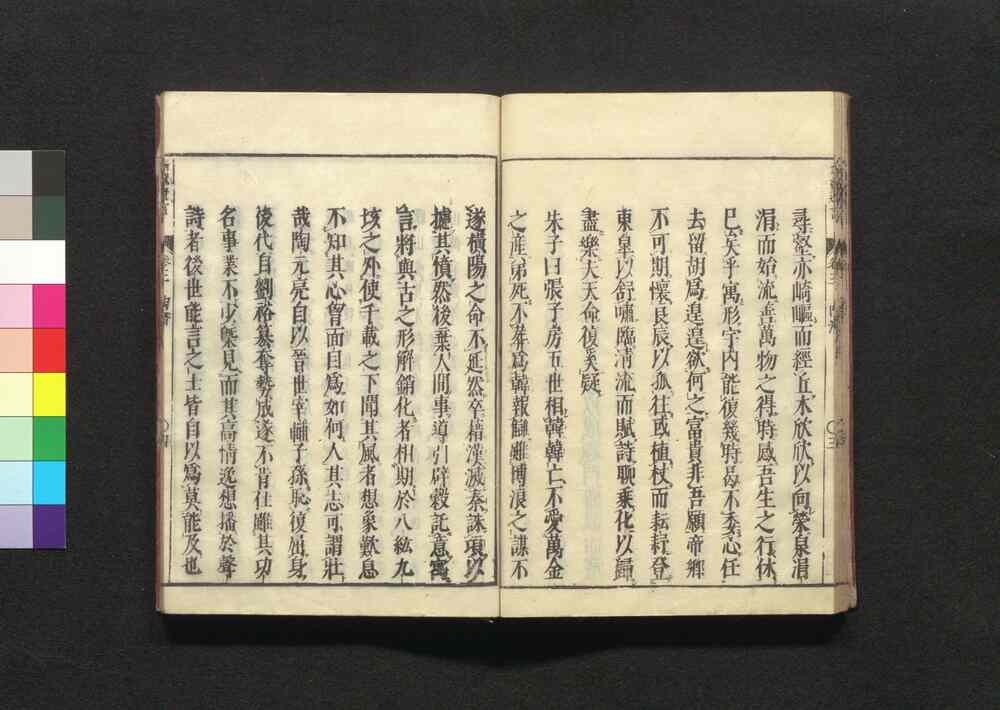 尋壑亦崎嶇而經丘木欣欣以向榮泉涓
涓而始流善萬物之得時感吾生之行休
已矣乎寓形宇内能復幾時曷不委心任
去留胡爲遑遑欲何之富貴非吾願帝鄉
不可期懷良辰以孤往或植杖而耘耔登
東皐以舒嘯臨清流而賦詩聊乘化以歸
盡樂夫天命復奚疑
朱子曰張子房五世相韓韓亡不愛萬金
之産弟死不葬爲韓報讎雖博浪之謀不
遂橫陽之命不延然卒藉漢滅秦誅項以
攄其憤然後棄人間事導引辟穀託意寓
言將與古之形解銷化者相期於八紘九
垓之外使千載之下聞其風者想象歎息
不知其心胷面目爲如何人其志可謂壯
哉陶元亮自以晉世宰輔子孫恥復屈身
後代自劉裕簒奪勢成遂不肯仕雖其功
名事業不少槩見而其高情逸想播於聲
詩者後世能言之士皆自以爲莫能及也